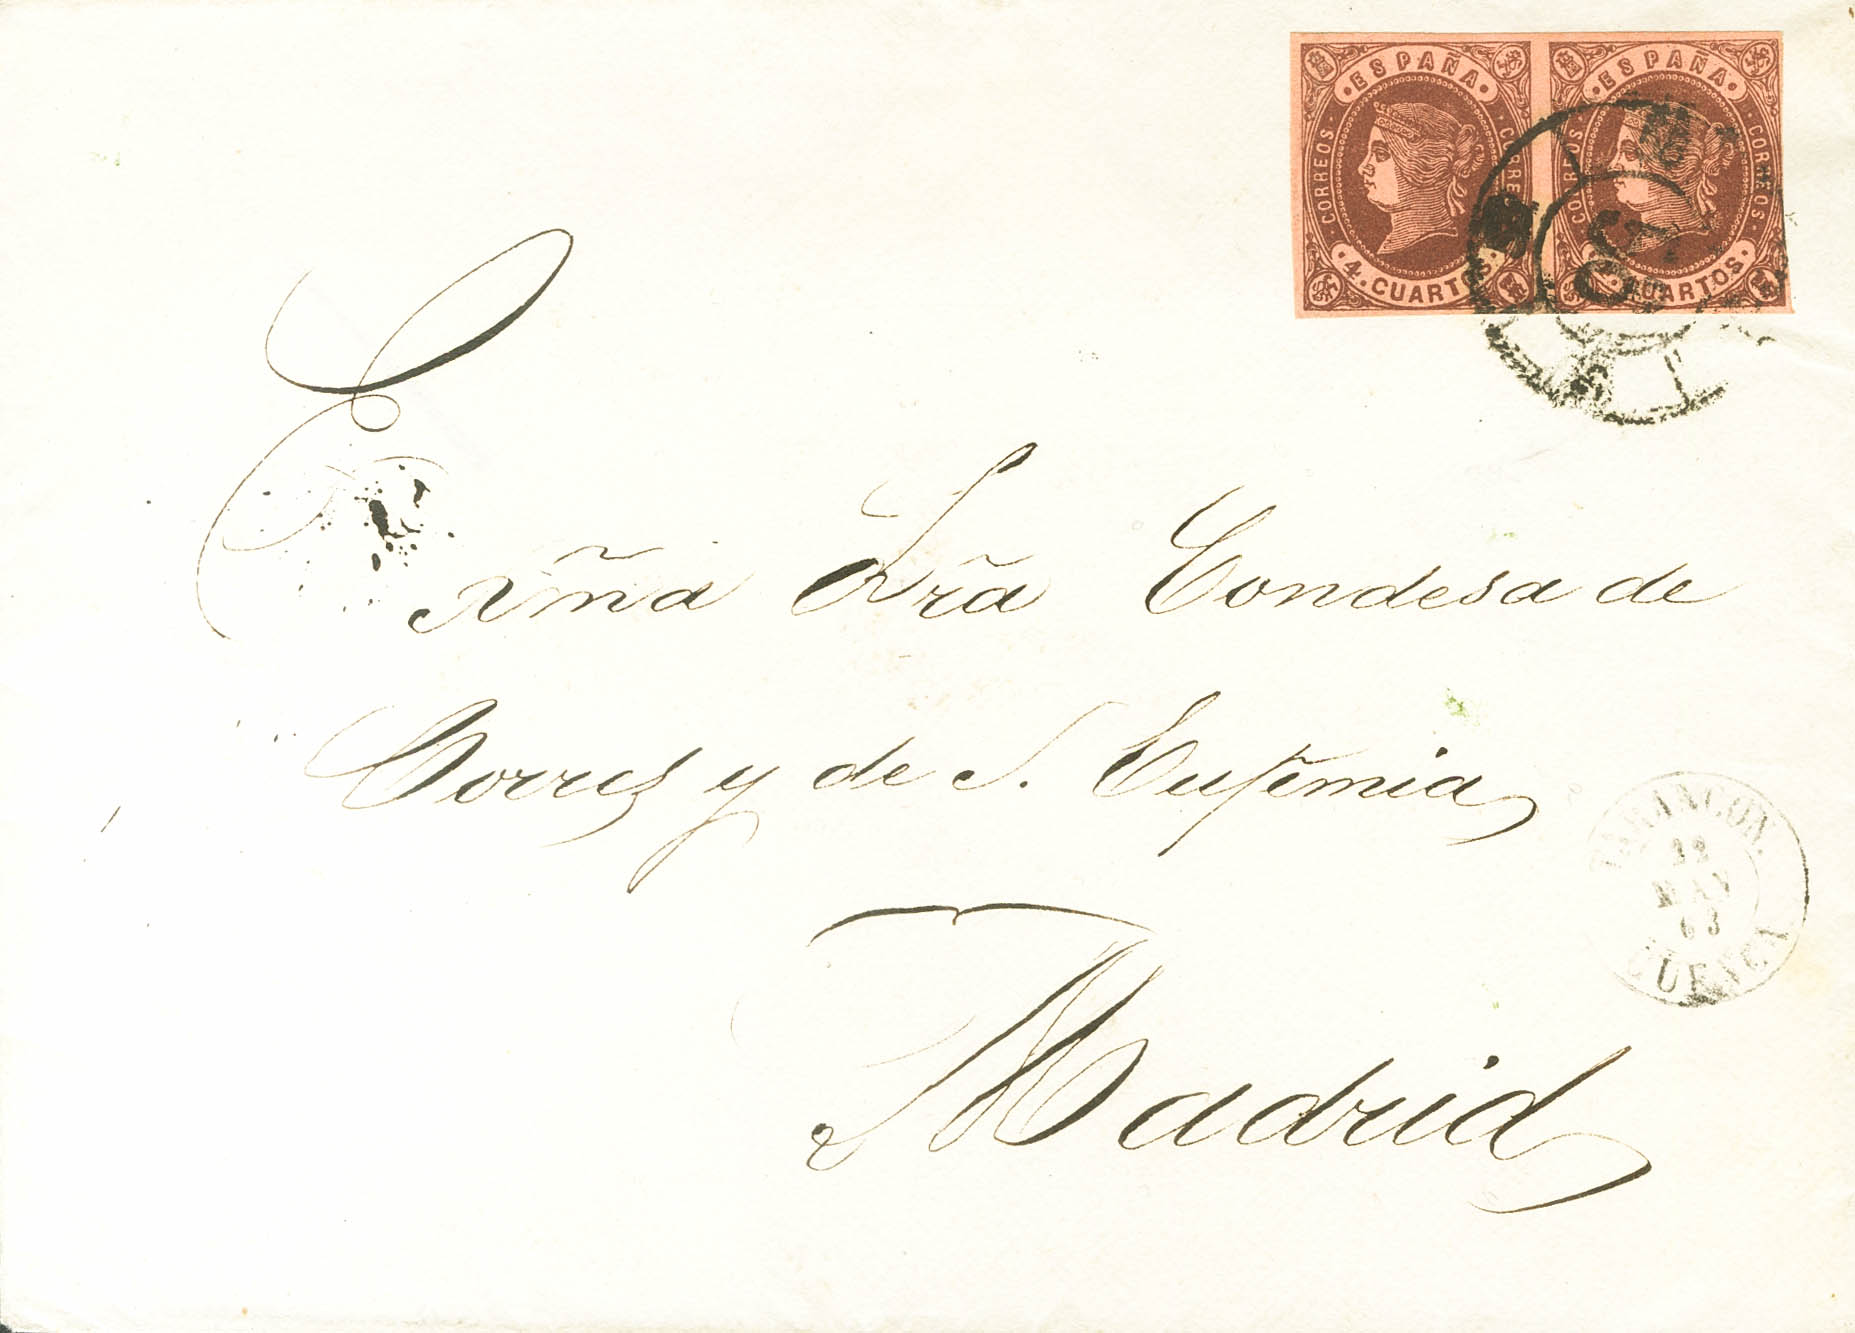 · ESPAÑA · · ESPAÑA ·
CORREOS · CORREOS CORREOS · CORREOS
· 4 · CUARTOS · CUARTOS ·
Exma Sra Condesa de
Torres y de S. Eufemia
Madrid
TARANCON.
22
MAY
63
CUENCA